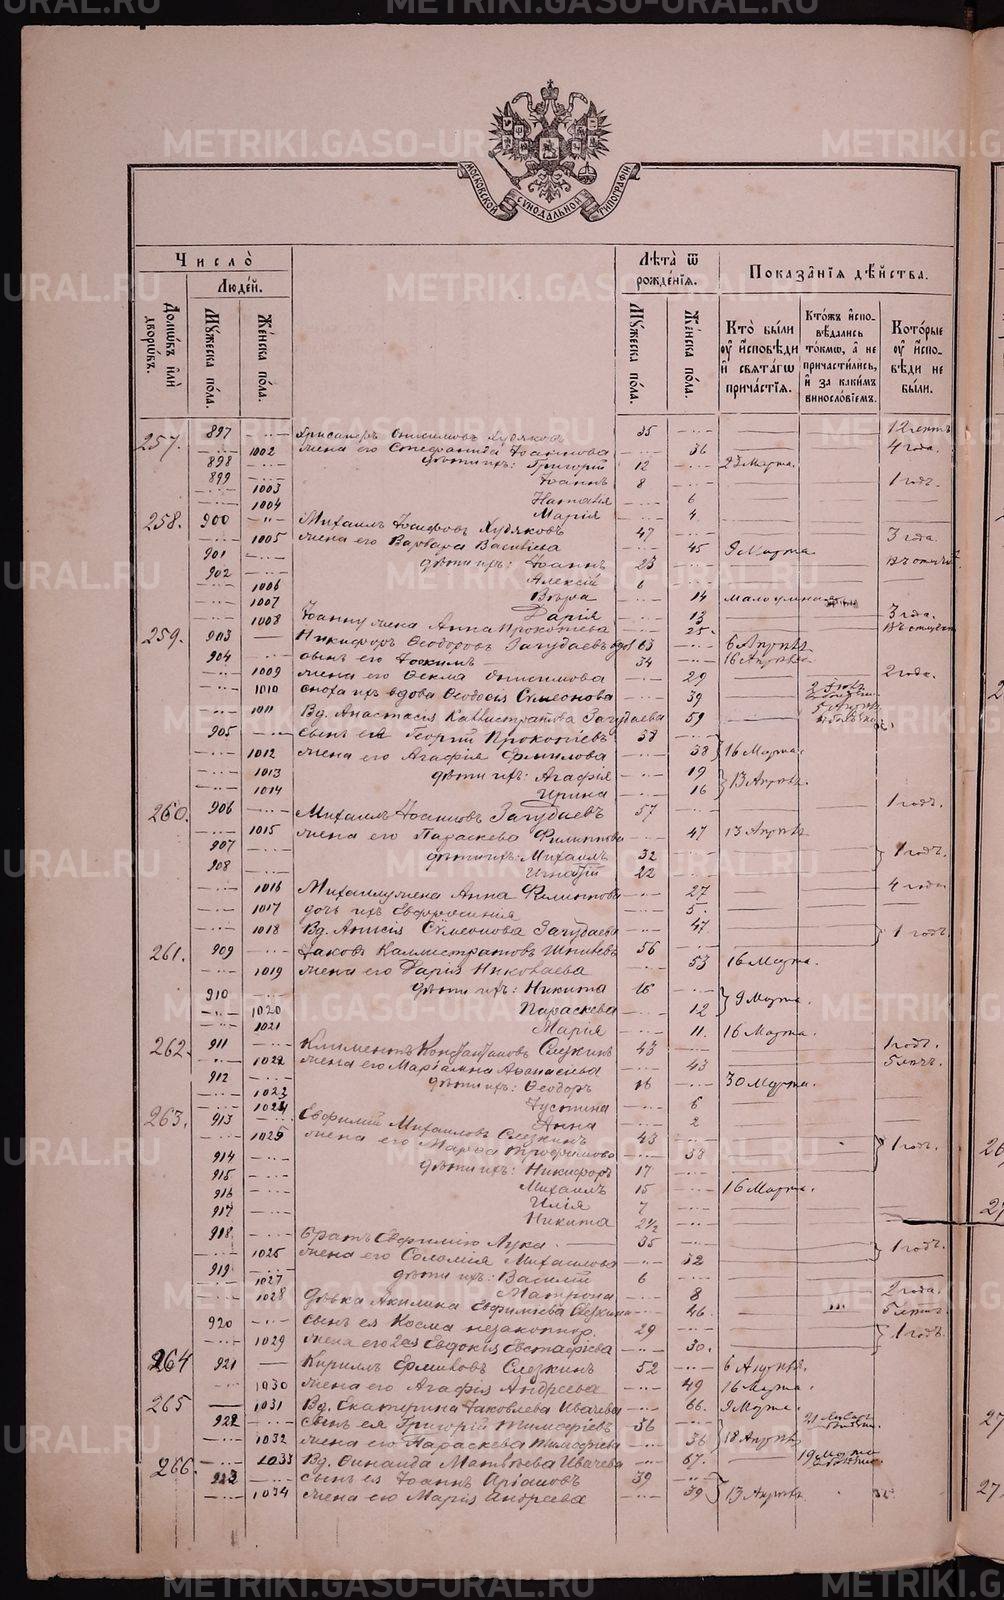 METRIKI.GASO-URAL.RU
МОСКОВСКОЙ СѴНОДАЛЬНОЙ ТИПОГРАФІИ
Число̀
Люде́й.
Домѡ́въ и҆лѝ дворѡ́въ.
Мꙋ́жеска по́ла.
Же́нска по́ла.
Лѣ́та ѿ рожде́нїѧ.
Мꙋ́жеска по́ла.
Же́нска по́ла.
Показа̑нїѧ дѣ́йства.
Кто̀ бы́ли оу҆ и҆́сповѣди и҆ свѧта́гѡ прича́стїѧ.
Кто́жъ и҆спо-вѣ́дались то́кмѡ, а҆ не причасти́лись, и҆ за каки́мъ виносло́вїемъ.
Кото́рые оу҆ и҆́спо-вѣди не бы́ли.
257. 897 Хрисанѳъ Онисимовъ Худяковъ 35 12 летъ
1002 жена его Стефанида Іоаннова 36 4 года.
898 дѣти ихъ: Григорій 12 23 Марта.
899 Іоаннъ 8 1 годъ.
1003 Наталія 6
1004 Марія 4
258. 900 Михаилъ Іосифовъ Худяковъ 47 3 года.
1005 жена его Варвара Васильева 45 9 Марта
901 дѣти ихъ: Іоаннъ 23
902 Алексій 6
1006 Вѣра 14 малоумна
1007 Дарія 13 3 года.
1008 Іоанну жена Анна Прокопьева 25
259. 903 Никифоръ Ѳеодоровъ Загудаевъ вдов 63 6 Апрѣля
904 сынъ его Іоакимъ 34 16 Апрѣля
1009 жена его Ѳекла Онисимова 29 2 года.
1010 сноха ихъ вдова Ѳеодосія Сѵмеонова 39
1011 Вд. Анастасія Каллистратова Загудаева 59
905 сынъ ея Георгій Прокопіевъ 38
1012 жена его Агафія Ермилова 38 16 Марта.
1013 дѣти ихъ: Агафія 19 13 Апрѣля
1014 Ирина 16
260. 906 Михаилъ Іоанновъ Загудаевъ 57 1 годъ.
1015 жена его Параскева Филиппова 47 13 Апрѣля
907 дѣти ихъ: Михаилъ 32 1 годъ.
908 Игнатій 22
1016 Михаилу жена Анна Филиппова 27 4 года
1017 дочь ихъ Евфросинія 5
1018 Вд. Анисія Сѵмеонова Загудаева 47 1 годъ
261. 909 Іаковъ Каллистратовъ 56
1019 жена его Дарія Николаева 53 16 Марта.
910 дѣти ихъ: Никита 16 9 Марта.
1020 Параскева 12
1021 Марія 11. 16 Марта.
262. 911 Климентъ Константиновъ Слезкинъ 43 1 годъ.
1022 жена его Маріамна Аѳанасьева 43 5 лѣтъ.
912 дѣти ихъ: Ѳеодоръ 16 30 Марта.
1023 Іустина 6
1024 Анна 2
263. 913 Евфимій Михаиловъ Слезкинъ 43 1 годъ.
1025 жена его Марѳа Трофимова 38
914 дѣти ихъ: Никифоръ 17
915 Михаилъ 15 16 Марта.
916 Илія 7
917 Никита 2½
918 братъ Евфимію Лука 35 1 годъ.
1026 жена его Соломія Михаилова 32
919 дѣти ихъ: Василій 6
1027 Матрона 8 2 года.
1028 дѣвка Акилина Евфимьева 46 5 лѣтъ.
920 сынъ ея Косма незаконнор. 29 1 годъ
1029 жена его 2ая Евдокія Евстафіева 30.
264 921 Кириллъ Ермиловъ Слезкинъ 52 6 Апрѣля.
1030 жена его Агафія Андреева 49 16 Марта.
265 1031 Вд. Екатерина Іаковлева Ивачева 66. 9 Марта.
922 сынъ ея Григорій Тимоѳеевъ 36
1032 жена его Параскева Тимоѳеева 36 18 Апрѣля
266. 1033 Вд. Матвѣева Ивачева 67.
923 сынъ ея Іоаннъ 39
1034 жена его Марія Андреева 39 13 Апрѣля.